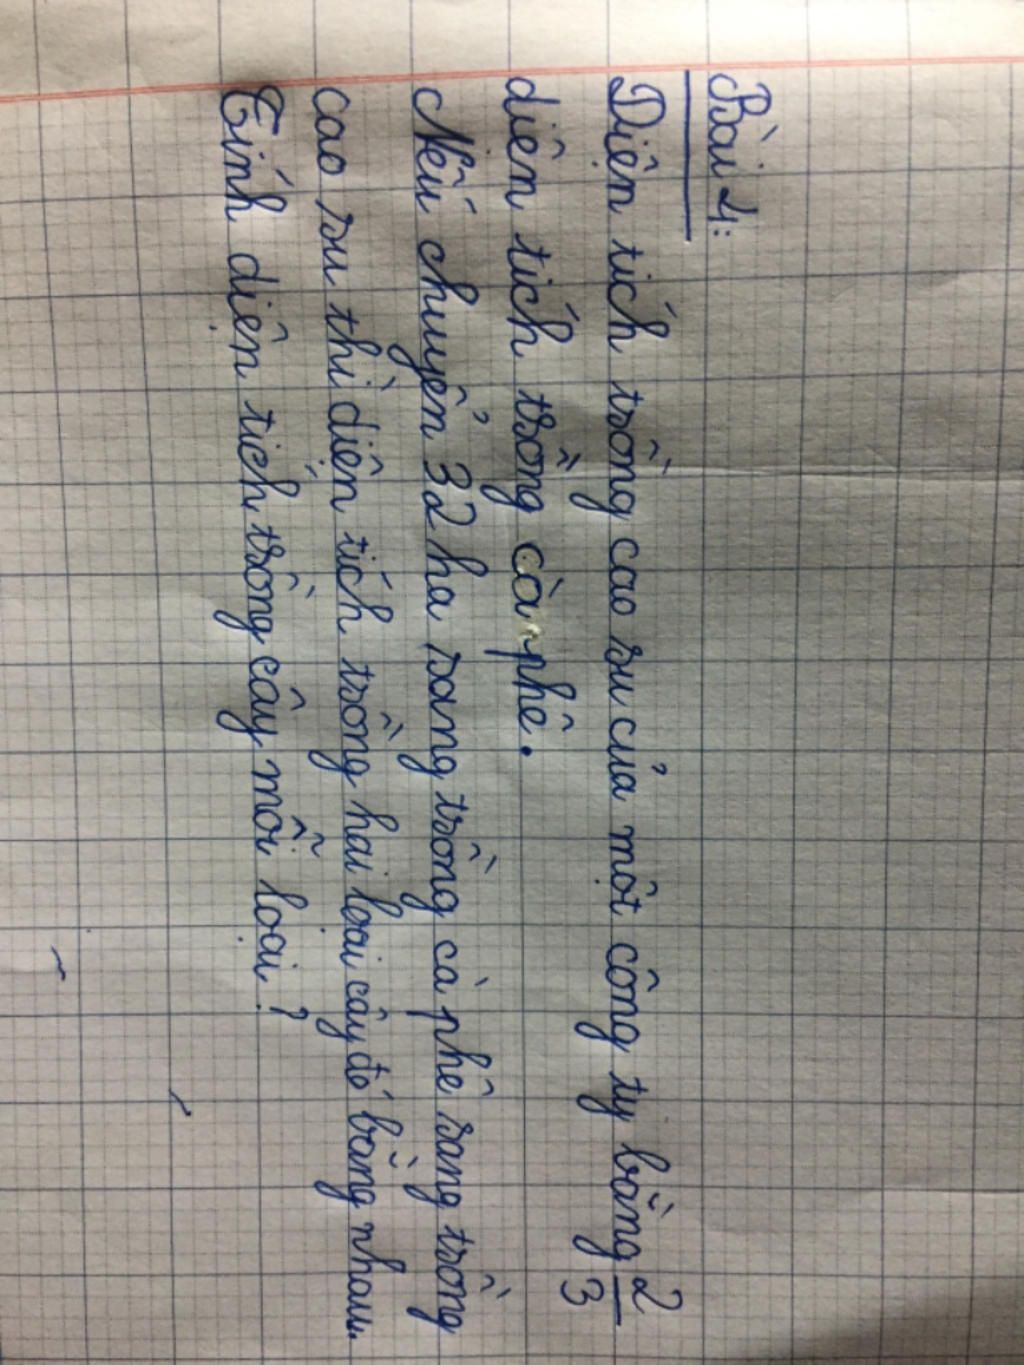 Bài 4:
Diện tích trồng cao su của một công ty bằng 2/3
diện tích trồng cà phê.
Nếu chuyển 32 ha sang trồng cà phê sang trồng
cao su thì diện tích trồng hai loại cây đó bằng nhau.
Tính diện tích trồng cây mỗi loại?